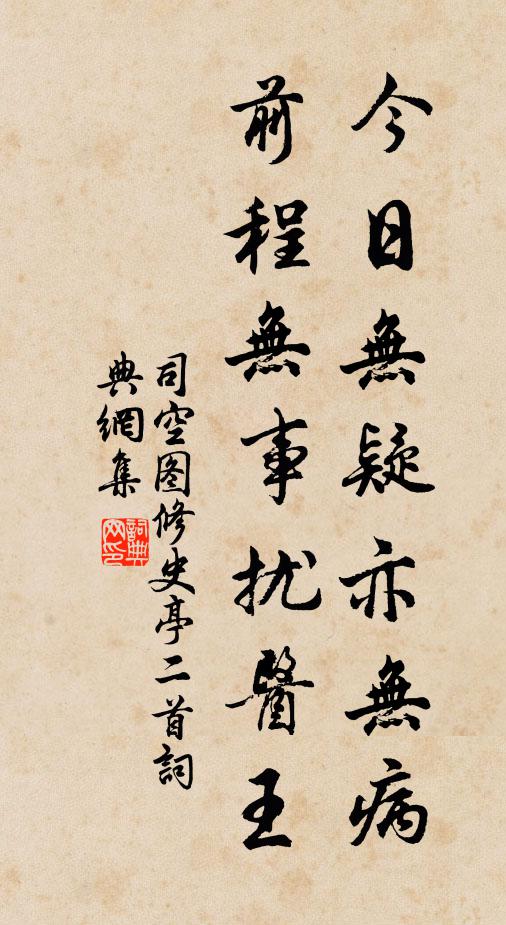 今日無疑亦無病
前程無事扰醫王
司空图修史亭二首詞
典網集
詞典网印